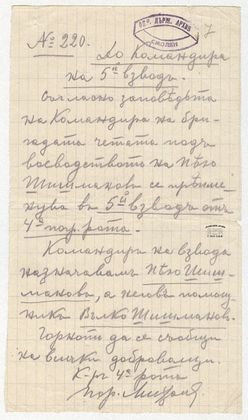 ДЪРЖ. АРХИВ
СМОЛЯН
7
№ 220.
До Командира
на 5й взводъ
Съгласно заповѣдьта
на Командира на бри-
гадата четата подъ
воеводството на Пѣю
Шишмановъ се прѣиме-
нува въ 5й взводъ отъ
4та пар. рота.
Командиръ на взвода
назначавамъ Пѣю Шиш-
мановъ, а неговъ помощ-
никъ Вълко Шишмановъ.
Горното да се съобщи
на всички доброволци.
К-ръ 4та рота